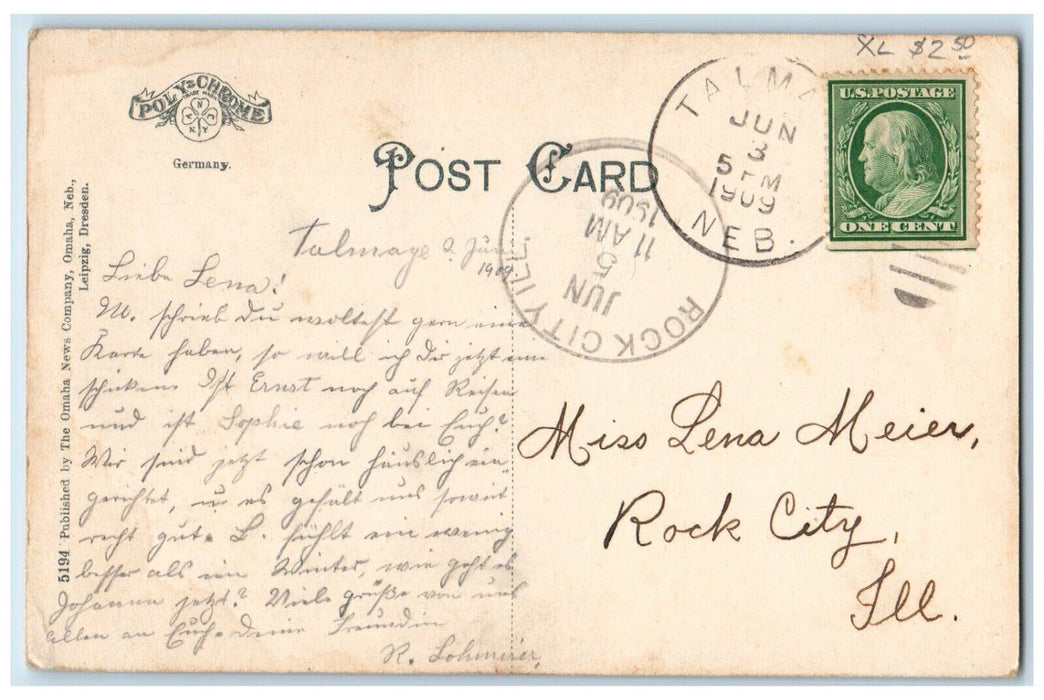 XL $2.50
POLY=CHROME
TRADE MARK
Germany.
POST CARD
TALMA
JUN
3
5 PM
1909
NEB.
U.S. POSTAGE
ONE CENT
ROCK CITY ILL.
JUN
5
11 AM
1909
5194 Published by The Omaha News Company, Omaha, Neb.,
Leipzig, Dresden.
Talmage Juni
1909
Liebe Lena!
M. schrieb Du woltest gern eine
Karte haben, so will ich Dir jetzt eine
schicken. Ist Ernst noch auf Reisen
und ist Sophie noch bei Euch?
Wir sind jetzt schon häuslich ein
gerichtet, u es gefält uns soweit
recht gut. L. fühlt ein wenig
besser als im Winter, wie geht es
Johann jetzt? Viele grüße von uns
allen an Euch. Deine Freundin
R. Lohmeier,
Miss Lena Meier,
Rock City,
Ill.